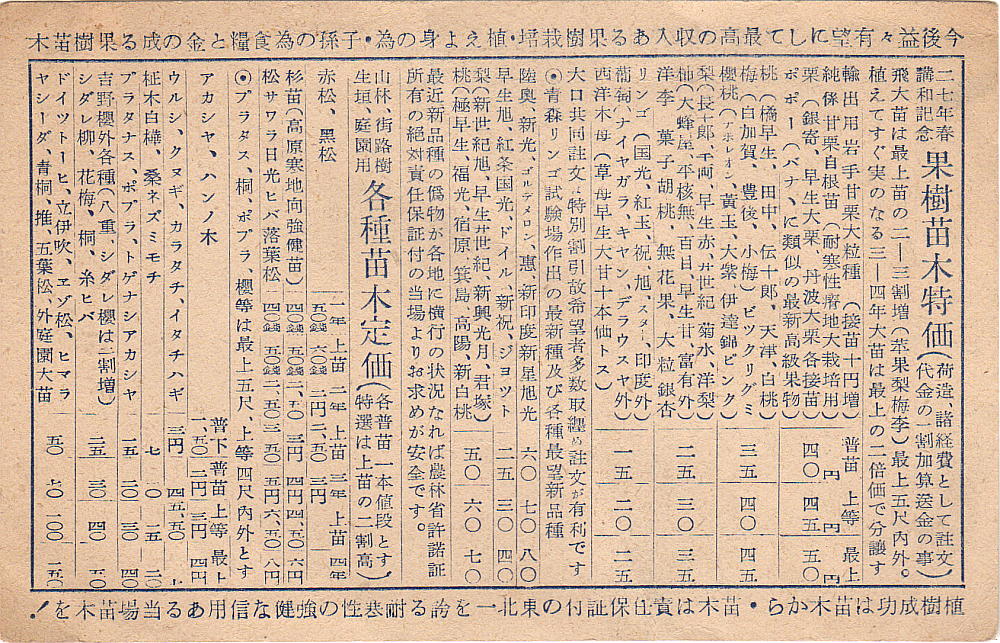 今後益々有望にして最高の収入ある果樹栽培・植えよ身の為・子孫の為食糧と金の成る果樹苗木
二七年春
講和記念
果樹苗木特価
(荷造、諸経費として註文
代金の一割加算送金の事)
飛大苗は最上苗の二―三割増(苹果梨梅李)最上五尺内外。
植えてすぐ実のなる三―四年大苗は最上の二倍価で分譲す
普苗 上等 最上
輸出用岩手甘栗大粒種(接苗十円増)
純係甘栗自根苗(耐寒性瘠地大栽培用)
栗(銀寄、早生大栗、丹波大栗各接苗)
ポポー(バナヽに類似の最新高級果物)
四〇円 四五 五〇円
桃(橘早生、田中、伝十郎、天津、白桃)
梅(白加賀、豊後、小梅)ビックリグミ
櫻桃(ナポレオン、黄玉、大紫、伊達錦ピンク)
三五 四〇 四五
梨(長十郎、千両、早生赤、廿世紀 菊水、洋梨)
柿(大蜂屋、平核無、百目、早生甘、富有外)
洋李 菓子胡桃、無花果、大粒銀杏
二五 三〇 三五
リンゴ(国光、紅玉、祝、旭、スター、印度外)
葡萄(ナイヤガラ、キヤン、デラウスヤ外)
西洋木母(草母早生大甘十本価トス)
一五 二〇 二五
大口共同註文は特別割引故希望者多数取纏め註文が有利です
◎青森リンゴ試験場作出の最新種及び各種最望新品種
陸奥、新光、ゴルデメロン、惠、新印度新星旭光 六〇 七〇 八〇
早生旭、紅条国光、ドイル、新祝、ジヨツト 二五 三〇 四〇
梨(新世紀旭、早生廿世紀、新興光月、君塚)
桃(極早生、福光、宿原、箕島、高陽、新白桃)
五〇 六〇 七〇
最近新品種の僞物が各地に横行の状況なれば農林省許諾証
所有の絶対責任保証付の当場よりお求めが安全です。
山林、街路樹
生垣、庭園用
各種苗木定価
(各普苗一本値段とす、
特選は上苗の二割高)
一年 上苗 二年 上苗 三年 上苗 四年
赤松、黒松 五〇銭 六〇銭 二円 二、五〇 三円
杉苗(高原寒地向強健苗) 四〇銭 五〇銭 二、五〇 三円 四円 四、五〇 六円
松サワラ日光ヒバ落葉松 四〇銭 五〇銭 二、五〇 三、五〇 五円 六、五〇 八円
◎プラタス、桐、ポプラ、櫻等は最上五尺、上等四尺内外とす
普下 普苗 上等 最上
アカシヤ、ハンノ木 一、五〇 二円 三円 四円
ウルシ、クヌギ、カラタチ、イタチハギ 三円 四 五、五〇 七
柾木白樺、桑ネズミモチ 七 一〇 一五 二〇
プラタナス、ポプラ、トゲナシアカシヤ 一五 二〇 三〇 四〇
吉野櫻外各種(八重、シダレ櫻は二割増)
シダレ柳、花梅、桐、糸ヒバ
二五 三〇 四〇 五〇
ドイツトーヒ、立伊吹、ヱゾ松、ヒマラ
ヤシーダ、青桐、椎、五葉松、外庭園大苗
五〇 七〇 一〇〇 一五〇
植樹成功は苗木から・苗木は責任保証付の東北一を誇る耐寒性の強健な信用ある当場苗木を！